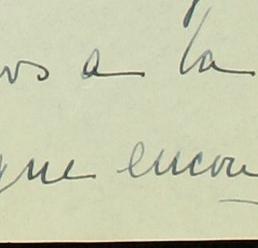 vos a la
que encou